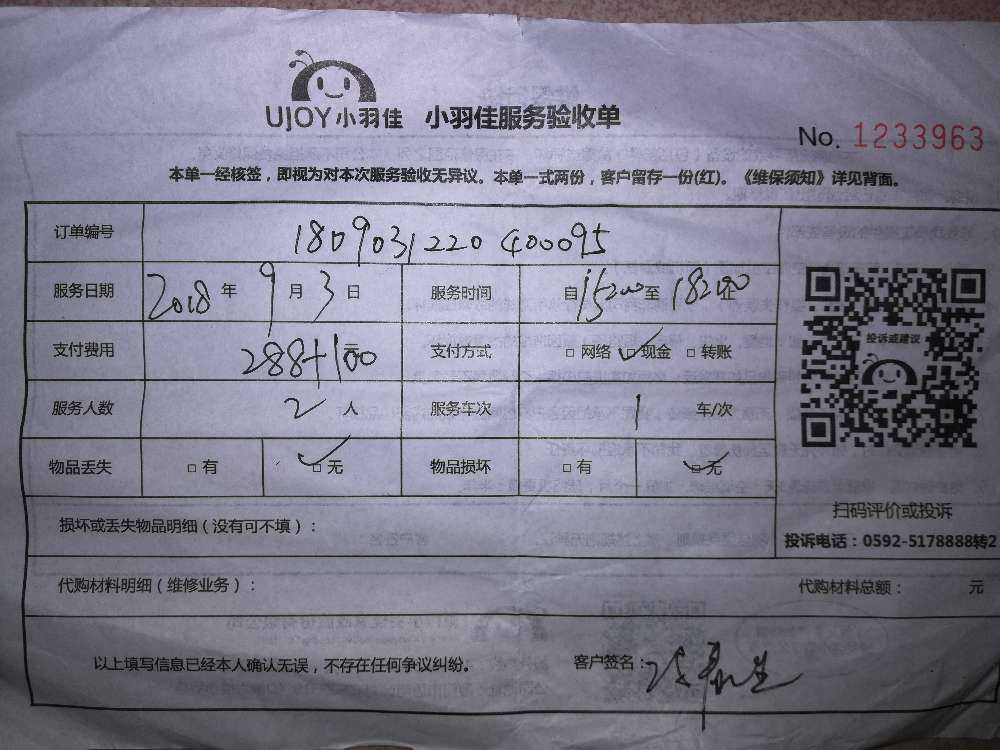 UJOY小羽佳 小羽佳服务验收单
No. 1233963
本单一经核签，即视为对本次服务验收无异议。本单一式两份，客户留存一份(红)。《维保须知》详见背面。
订单编号 1809031220400095
服务日期 2018 年 9 月 3 日 服务时间 自 15:00 至 18:00 止
支付费用 288+100 元 支付方式 □ 网络 ☑ 现金 □ 转账
投诉或建议
服务人数 2 人 服务车次 1 车/次
物品丢失 □ 有 ☑ 无 物品损坏 □ 有 ☑ 无
扫码评价或投诉
损坏或丢失物品明细（没有可不填）：
投诉电话：0592-5178888转2
代购材料明细（维修业务）： 代购材料总额： 元
以上填写信息已经本人确认无误，不存在任何争议纠纷。 客户签名：